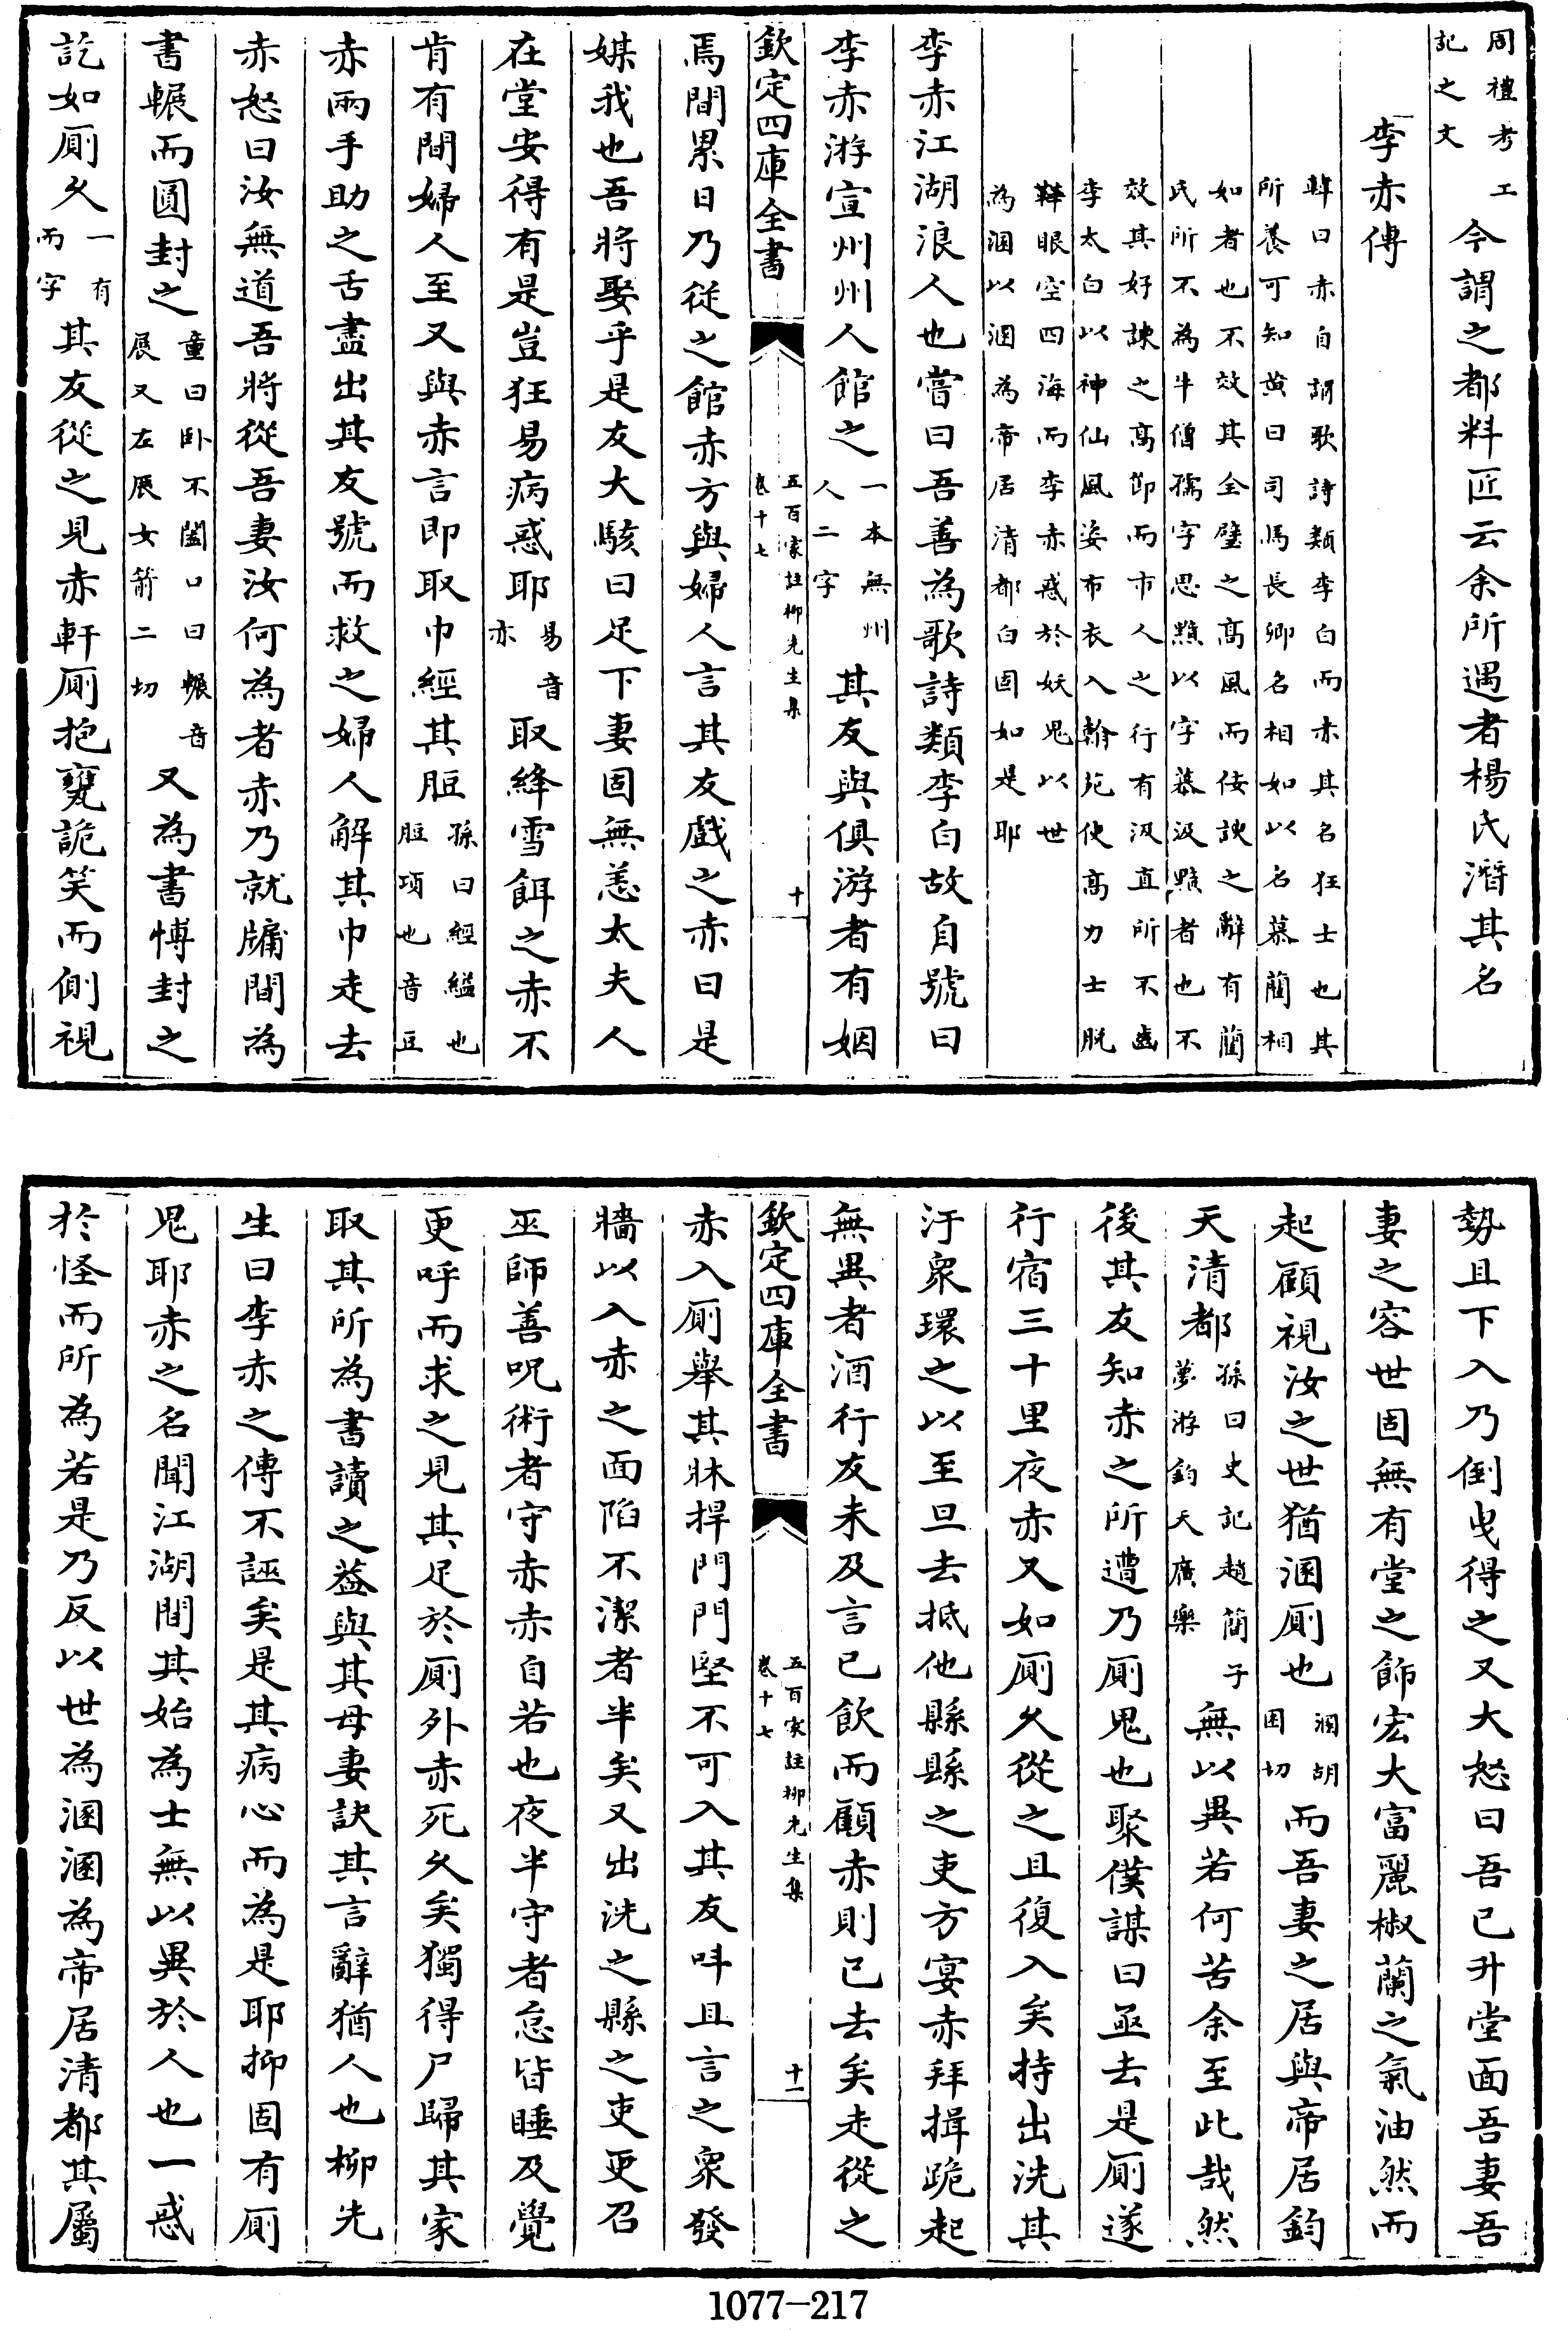 周禮考工
記之文
今謂之都料匠云余所遇者楊氏潛其名
李赤傳
韓曰赤自謂歌詩類李白而赤其名狂士也其
所養可知黄曰司馬長卿名相如以名慕藺相
如者也不效其全璧之高風而佞諛之辭有藺
氏所不為牛僧孺字思黯以字慕汲黯者也不
效其好諫之高節而市人之行有汲直所不齒
李太白以神仙風姿布衣入翰苑使髙力士脱
鞾眼空四海而李赤惑於妖鬼以世
為溷以溷為帝居清都白固如是耶
李赤江湖浪人也嘗曰吾善為歌詩類李白故自號曰
李赤游宣州州人館之
一本無州
人二字
其友與俱游者有姻
欽定四庫全書
五百家註柳先生集
卷十七
十
焉間累日乃從之館赤方與婦人言其友戲之赤曰是
媒我也吾將娶乎是友大駭曰足下妻固無恙太夫人
在堂安得有是豈狂易病惑耶
易音
亦
取絳雪餌之赤不
肯有間婦人至又與赤言即取巾經其脰
孫曰經縊也
脰項也音豆
赤兩手助之舌盡出其友號而救之婦人解其巾走去
赤怒曰汝無道吾將從吾妻汝何為者赤乃就牖間為
書輾而圓封之
童曰卧不闔口曰輾音
展又左展女箭二切
又為書博封之
訖如厠久
一有
而字
其友從之見赤軒厠抱甕詭笑而側視
勢且下入乃倒曳得之又大怒曰吾已升堂面吾妻吾
妻之容世固無有堂之飾宏大富麗椒蘭之氣油然而
起顧視汝之世猶溷厠也
溷胡
困切
而吾妻之居與帝居鈞
天清都
孫曰史記趙簡子
夢游鈞天廣樂
無以異若何苦余至此哉然
後其友知赤之所遭乃厠鬼也聚僕謀曰亟去是厠遂
行宿三十里夜赤又如厠久從之且復入矣持出洗其
汙衆環之以至旦去抵他縣縣之吏方宴赤拜揖跪起
無異者酒行友未及言已飲而顧赤則已去矣走從之
欽定四庫全書
五百家註柳先生集
卷十七
十一
赤入厠舉其牀捍門門堅不可入其友呌且言之衆發
牆以入赤之面陷不潔者半矣又出洗之縣之吏更召
巫師善呪術者守赤赤自若也夜半守者怠皆睡及覺
更呼而求之見其足於厠外赤死久矣獨得尸歸其家
取其所為書讀之蓋與其母妻訣其言辭猶人也柳先
生曰李赤之傳不誣矣是其病心而為是耶抑固有厠
鬼耶赤之名聞江湖間其始為士無以異於人也一惑
於怪而所為若是乃反以世為溷溷為帝居清都其屬
1077-217